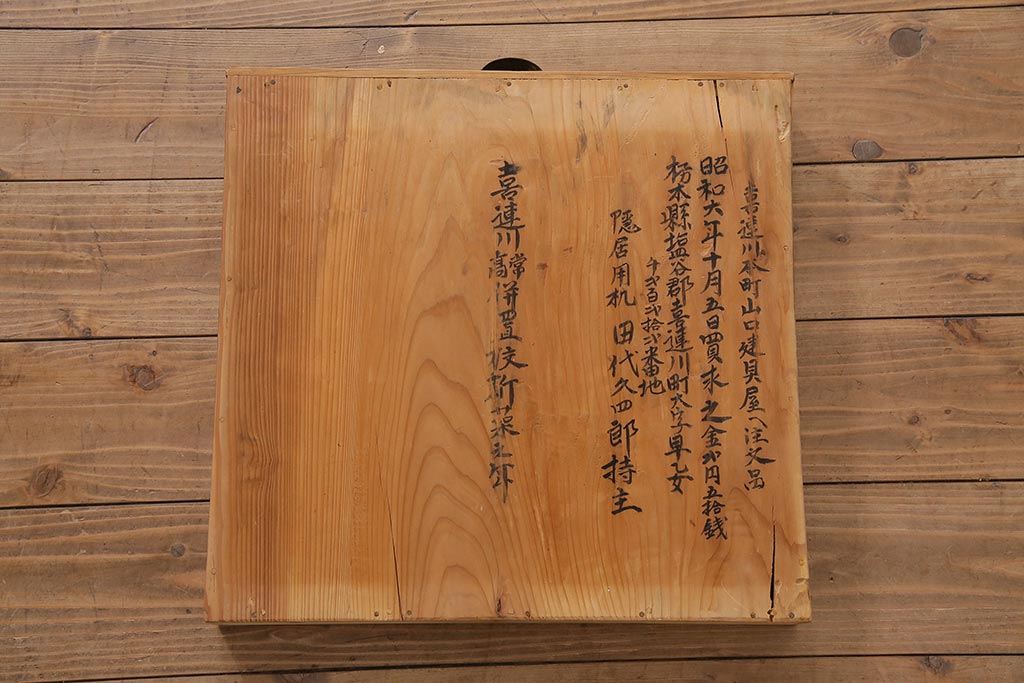 喜連川本町山口建具屋へ注文品
昭和六年十月五日買求之金弐円五拾銭
栃木縣塩谷郡喜連川町大字早乙女
千弐百弐拾六番地
隠居用机 田代久四郎持主
喜連川尋常高等併置校新築之年